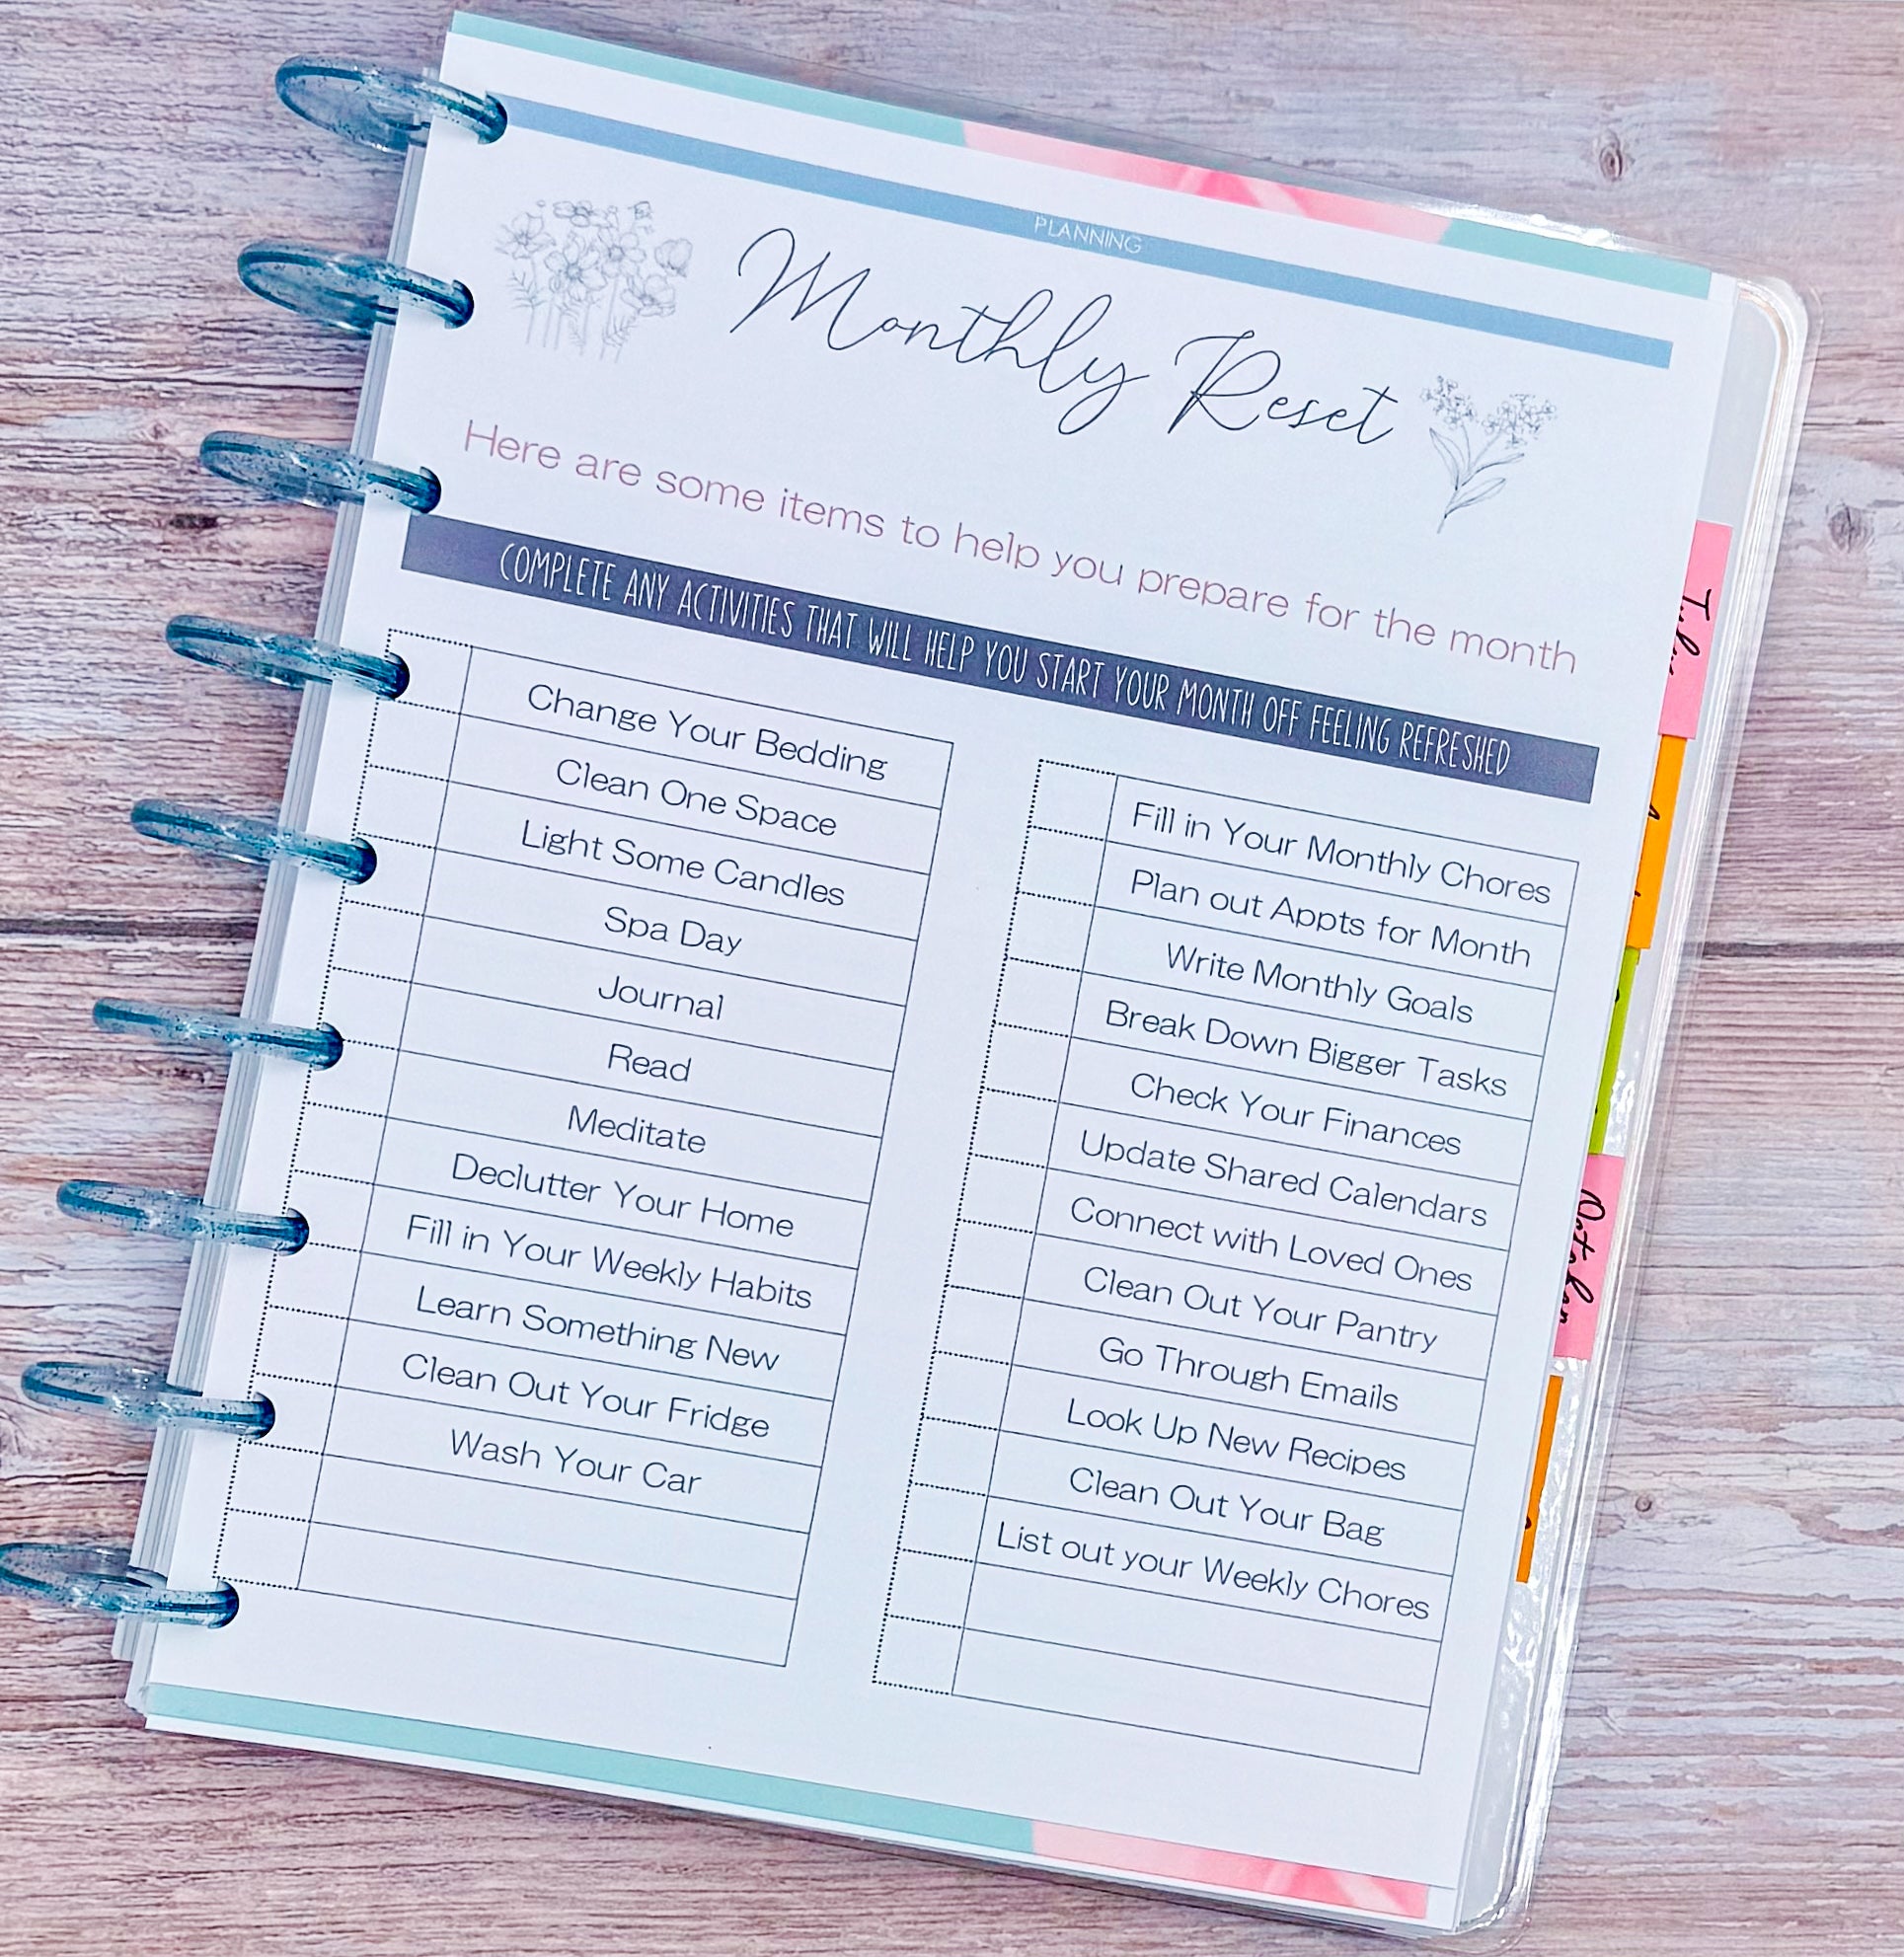 PLANNING
Monthly Reset
Here are some items to help you prepare for the month
COMPLETE ANY ACTIVITIES THAT WILL HELP YOU START YOUR MONTH OFF FEELING REFRESHED
Change Your Bedding
Clean One Space
Light Some Candles
Spa Day
Journal
Read
Meditate
Declutter Your Home
Fill in Your Weekly Habits
Learn Something New
Clean Out Your Fridge
Wash Your Car
Fill in Your Monthly Chores
Plan out Appts for Month
Write Monthly Goals
Break Down Bigger Tasks
Check Your Finances
Update Shared Calendars
Connect with Loved Ones
Clean Out Your Pantry
Go Through Emails
Look Up New Recipes
Clean Out Your Bag
List out your Weekly Chores
July
October